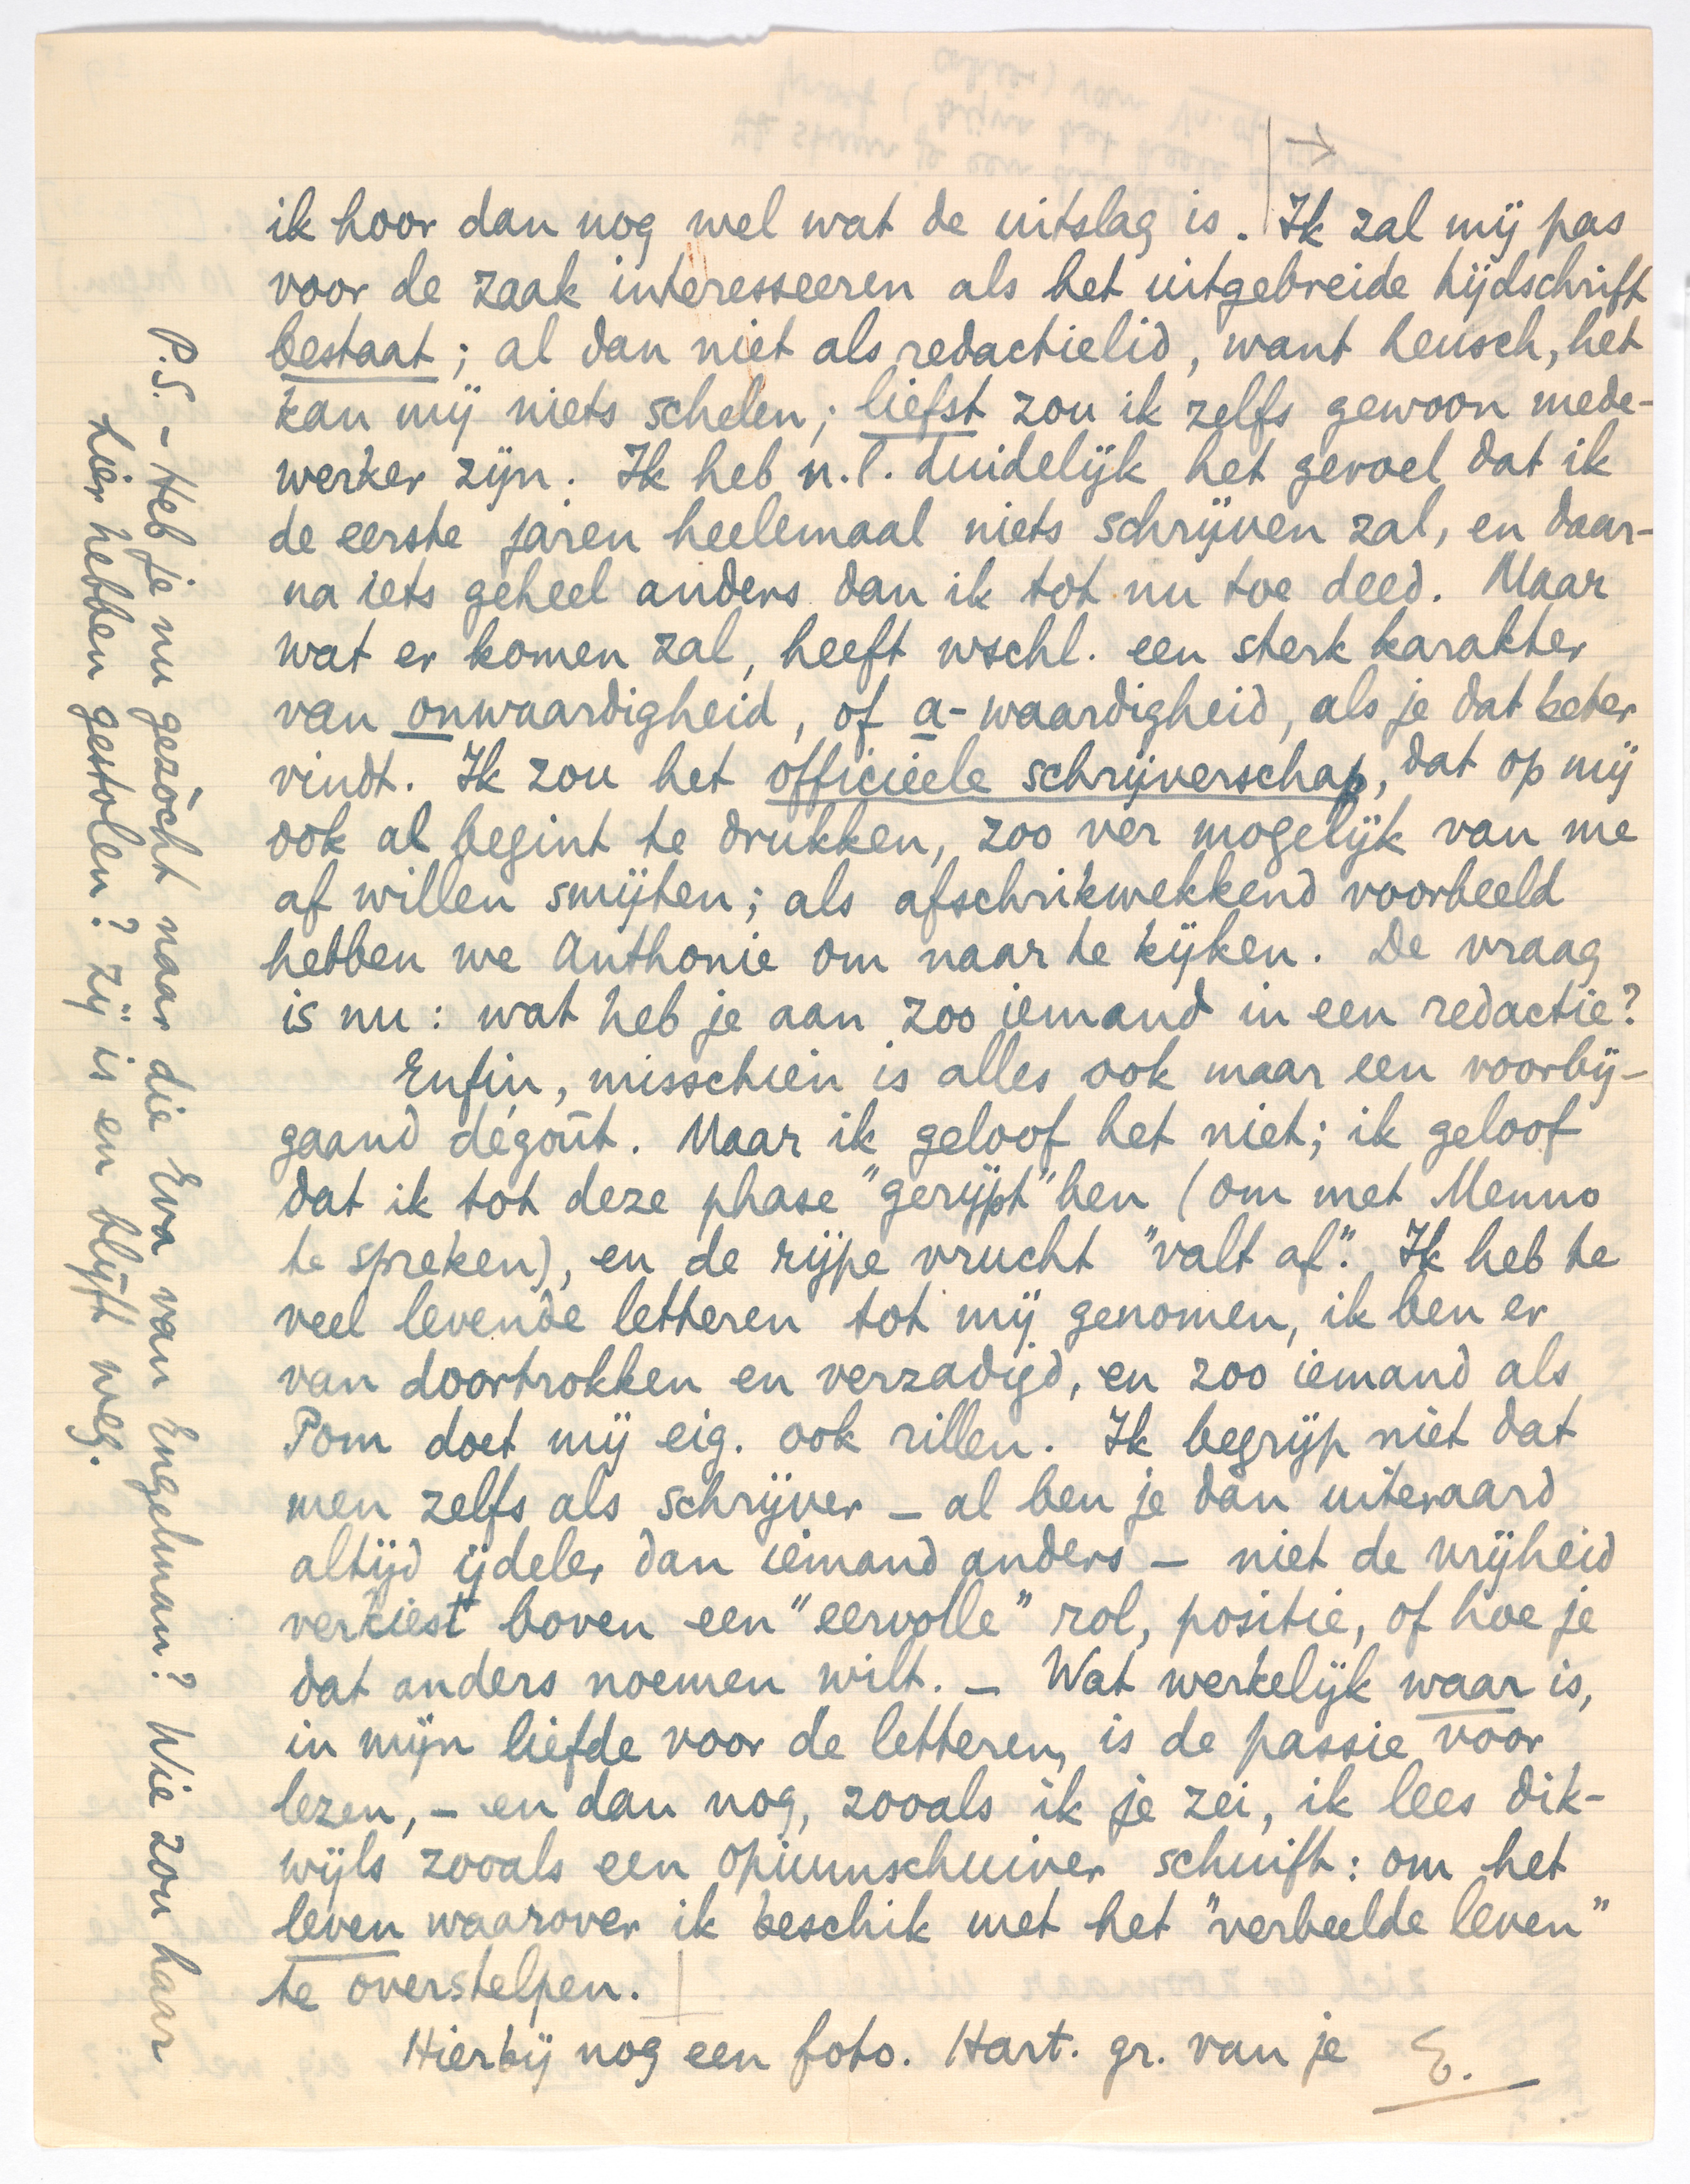 ik hoor dan nog wel wat de uitslag is. Ik zal mij pas
voor de zaak interesseeren als het uitgebreide tijdschrift
bestaat; al dan niet als redactielid, want heusch, het
kan mij niets schelen; liefst zou ik zelfs gewoon mede-
werker zijn. Ik heb n.l. duidelijk het gevoel dat ik
de eerste jaren heelemaal niets schrijven zal, en daar-
na iets geheel anders dan ik tot nu toe deed. Maar
wat er komen zal, heeft wschl. een sterk karakter
van onwaardigheid, of a-waardigheid, als je dat beter
vindt. Ik zou het officieele schrijverschap, dat op mij
ook al begint te drukken, zoo ver mogelijk van me
af willen smijten; als afschrikwekkend voorbeeld
hebben we Anthonie om naar te kijken. De vraag
is nu: wat heb je aan zoo iemand in een redactie?
Enfin, misschien is alles ook maar een voorbij-
gaand dégoût. Maar ik geloof het niet; ik geloof
dat ik tot deze phase "gerijpt" ben (om met Menno
te spreken), en de rijpe vrucht "valt af". Ik heb te
veel levende letteren tot mij genomen, ik ben er
van doortrokken en verzadigd, en zoo iemand als
Pom doet mij eig. ook rillen. Ik begrijp niet dat
men zelfs als schrijver – al ben je dan uiteraard
altijd ijdeler dan iemand anders – niet de vrijheid
verkiest boven een "eervolle" rol, positie, of hoe je
dat anders noemen wilt. – Wat werkelijk waar is,
in mijn liefde voor de letteren, is de passie voor
lezen, – en dan nog, zooals ik je zei, ik lees dik-
wijls zooals een opiumschuiver schuift: om het
leven waarover ik beschik met het "verbeelde leven"
te overstelpen.
Hierbij nog een foto. Hart. gr. van je E.
P.S. – Heb je nu gezòcht naar die Eva van Engelman? Wie zou haar
hier hebben gestolen? zij is en blijft weg.